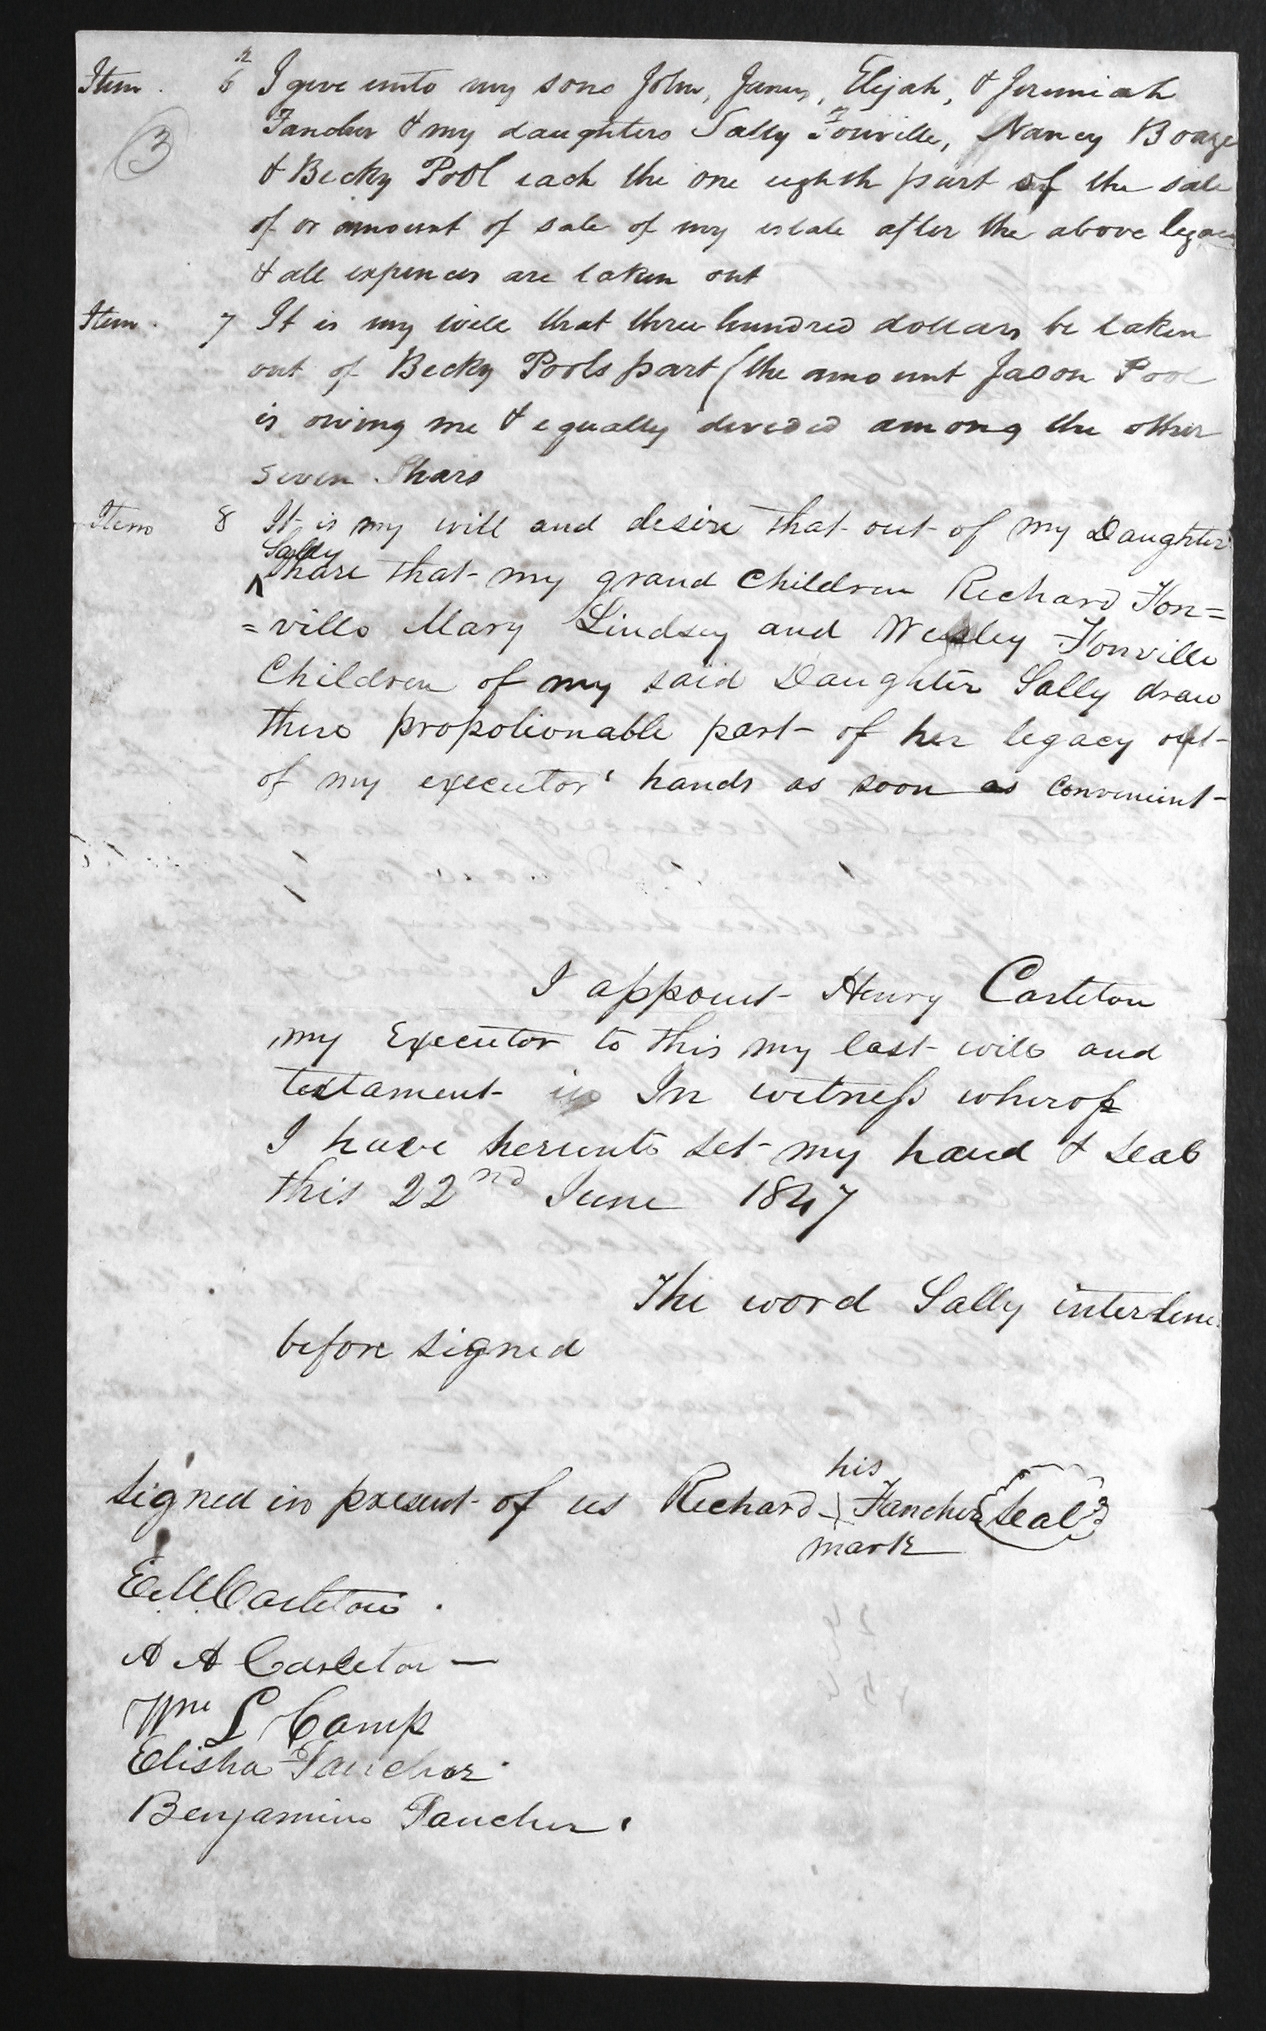 Item . 6 I give unto my sons John, James, Elijah, & Jeremiah
3
Fancher & my daughters Sally Fonville, Nancy Boaze
& Becky Pool each the one eighth part of the sale
of or amount of sale of my estate after the above
& all expences are taken out
Item . 7 It is my will that three hundred dollars be taken
out of Becky Pools part (the amount Jason Pool
is owing me & equally devided among the other
seven Shars
Item 8 It is my will and desire that out of my Daughter
Sally
^ Share that my grand Children Richard Fon=
=ville Mary Lindsey and Wesley Fonville
Children of my said Daughter Sally draw
there propotionable part of her legacy out
of my executor' hands as soon as convenient
I appoint Henry Carleton
my Executor to this my last will and
testament In witness wherof
I have herunto set my hand & seal
this 22nd June 1847
The word Sally interline
before signed
his
Signed in present of us Richard Fancher Seal
mark
E. M. Carleton .
A A Carleton —
Wm L Camp
Elisha Fancher .
Benjamin Fancher .